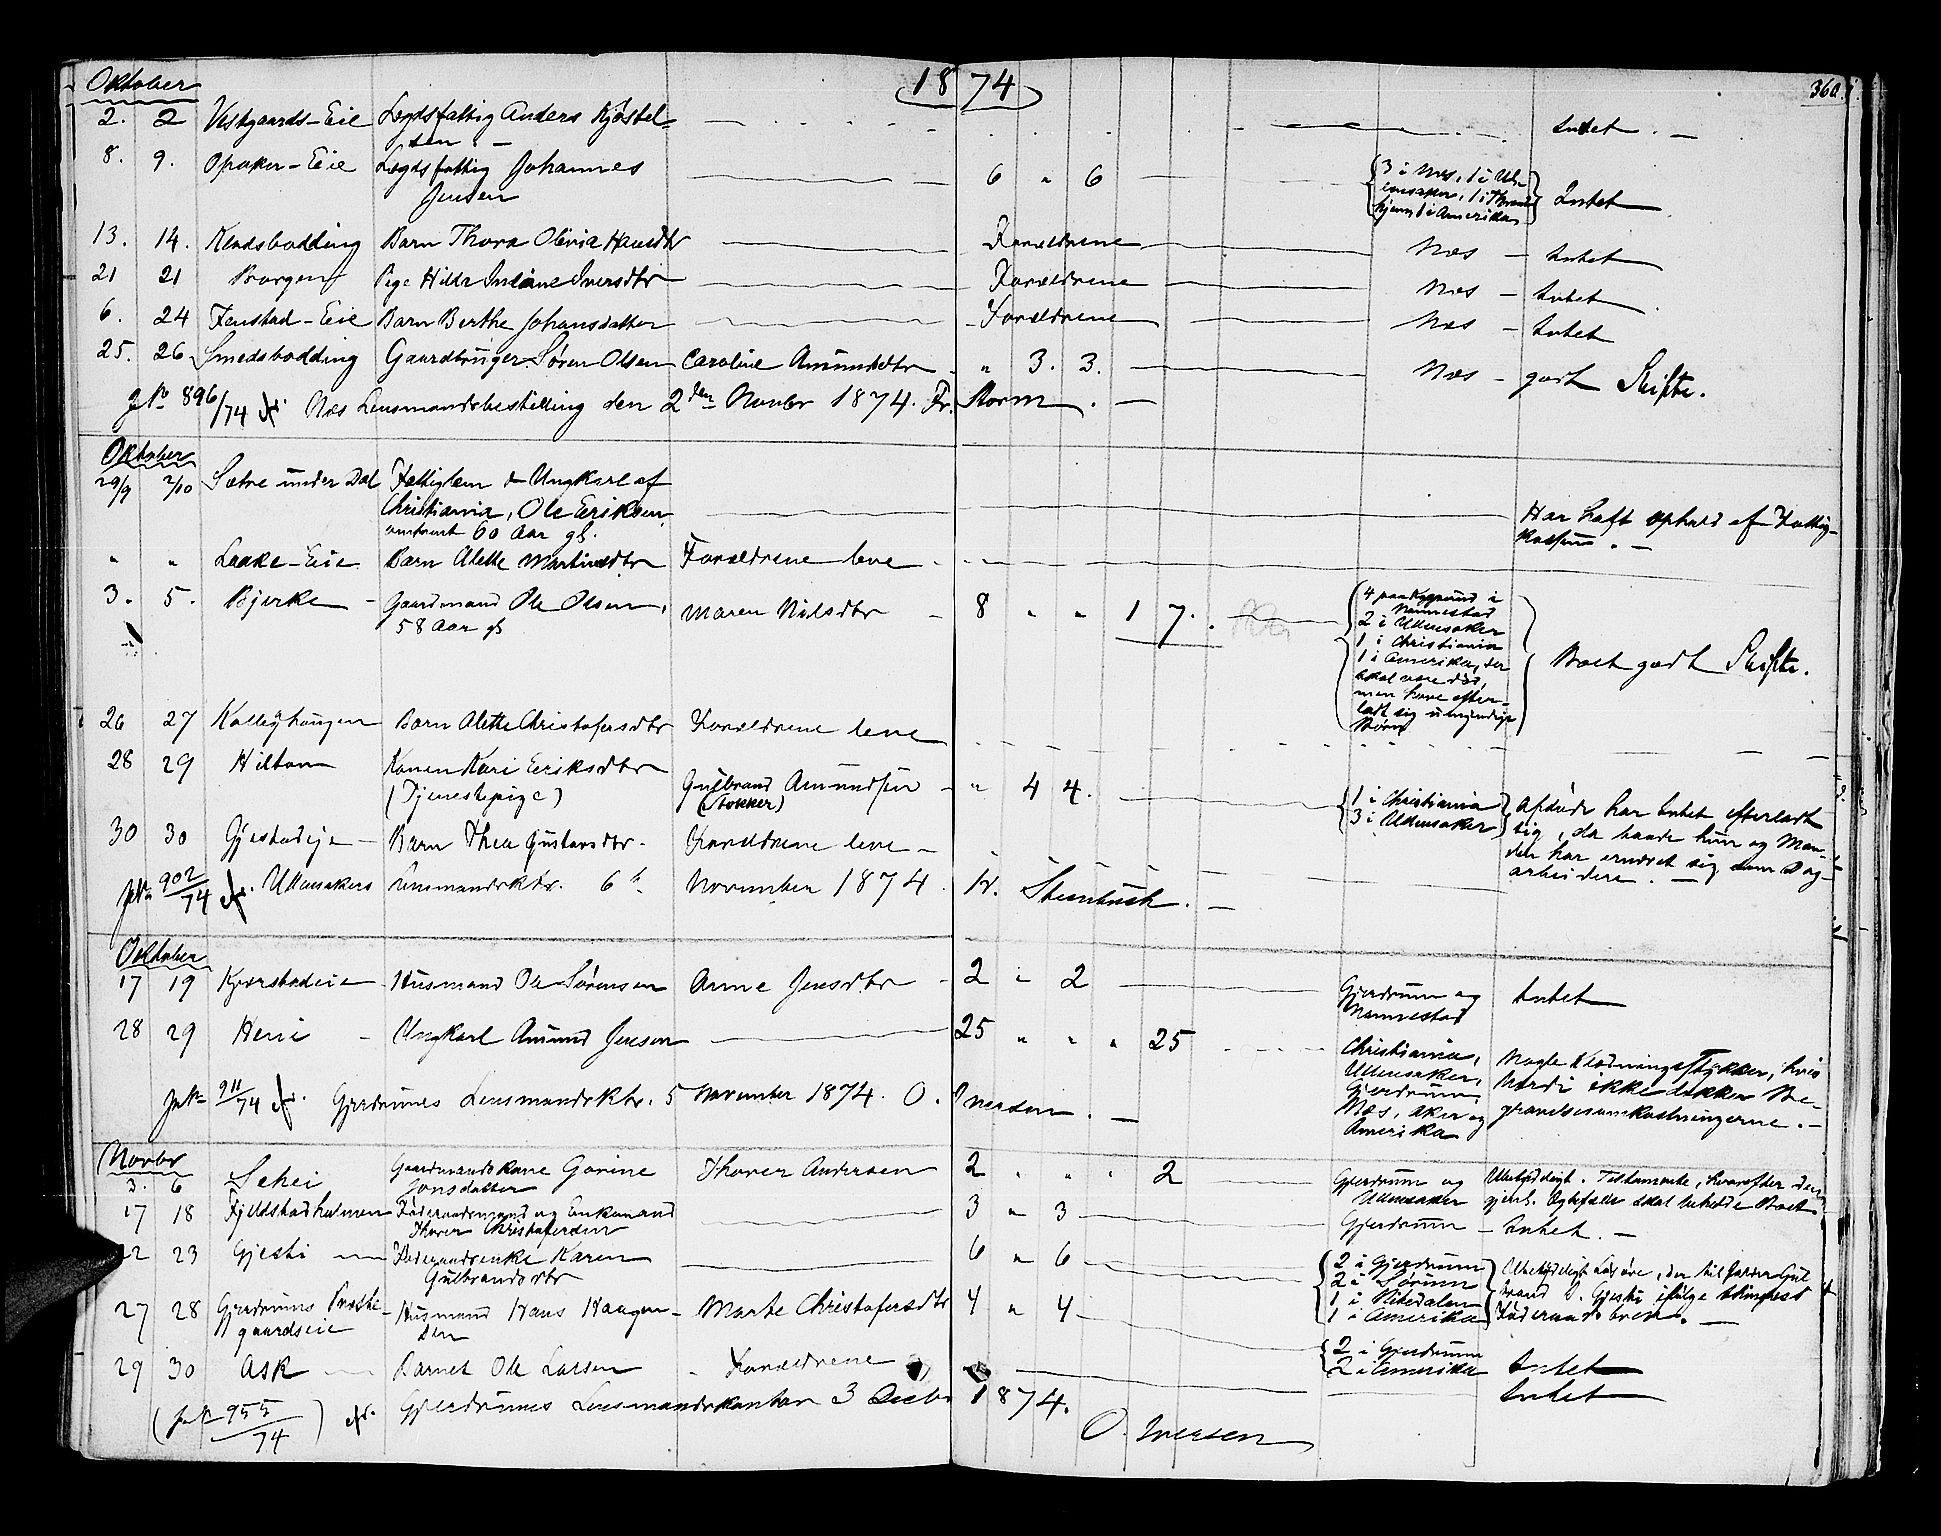 1874
360
Oktober
2. 2 Vestgaards-Eie Legdsfattig Anders Kjøstel- Intet. —
sen. —
8. 9. Opaker-Eie Lægdsfattig Johannes 6 " 6 3 i Næs, 1 i Ul- Intet
Jensen lensaker, 1 i
1 i Amerika
13. 14. Klodsbodding Barn Thora Olivia Hansdtr Forældrene Næs — Intet
21 21 Borgen Pige Hilda Iversdtr Forældrene Næs — Intet
6. 24 Fenstad-Eie Barn Berthe Johansdatter Forældrene Næs — Intet
25. 26 Smedsbodding Gaardbruger Søren Olsen Caroline Amundsdtr " 3. 3. Næs — godt Skifte.
896/74 Næs Lensmandsbestilling den 2den Novbr 1874. Fr. Storm. —
Oktober
29/9 2/10 Sætre under Dal Fattiglem & Ungkarl af
Christiania, Ole Eriksen, Har havt ophold af Fattig-
omtrent 60 Aar gl. kassen. —
" " Laake-Eie Barn Alette Martinsdtr Forældrene leve
3. 5. Bjerke — Gaardmand Ole Olsen, Maren Nilsdtr 8 " " 1 7. 4 paa Bjerke i
58 Aar gl Nannestad
2 i Ullensaker
1 i Christiania
1 i Amerika, der Boet godt Skifte.
skal være død,
men have efter-
ladt sig umyndige
Børn
26 27 Kalleghaugen Barn Alette Christofersdtr Forældrene leve
28 29 Hilton Konen Kari Eriksdtr Gulbrand Amundsen " 4 4. 1 i Christiania Afdøde har Intet efterladt
(Tjenestepige) (Stokker) 3 i Ullensaker sig, da baade hun og Man-
30 30 Gjestadeje — Barn Thea Gustavsdtr. Forældrene leve — den har ernæret sig som Dag-
arbeidere. —
902/74 Ullensakers Lensmandsktr. 6te November 1874. Steenbuch. —
Oktober
17 19 Kjærstadeie Husmand Ole Sørensen Anne Jensdtr 2 " 2 Gjerdrum og Intet
Nannestad
28 29 Heni — Ungkarl Amund Jensen 25 " " " 25 Christiania, Nogle Klædningsstykker, hvis
Ullensaker, Værdi ikke dækker Be-
Gjerdrum, gravelsesomkostningerne. —
Næs, Aker og
Amerika
911/74 Gjerdrums Lensmandsktr. 5 November 1874. O. Iversen. —
Novbr
3. 6 Gaardmandskone Gorine Thorer Andersen 2 " " " 2 Gjerdrum og Ubetydeligt. Testamente, hvorefter den
Jonsdatter Ullensaker gjenl. Ægtefælle skal beholde Boet
17 18 Fjeldstadholmen Føderaadsmand og Enkemand 3 " 3 Gjerdrum — Intet. —
Thorer Christofersen
22 23 Gjesti Føderaadsenke Karen 6 " 6 2 i Gjerdrum
Gulbrandsdtr 2 i Sørum
1 i Nitedalen
1 i Amerika
27 28 Gjerdrums Præste- Husmand Hans Haagen- Marte Christofersdtr 4 " 4
gaardseie sen 2 i Gjerdrum
2 i Amerika Intet
29 30 Ask Barnet Ole Larsen Forældrene Intet
(955/74) Gjerdrums Lensmandskontor 3 Decbr 1874.
O. Iversen